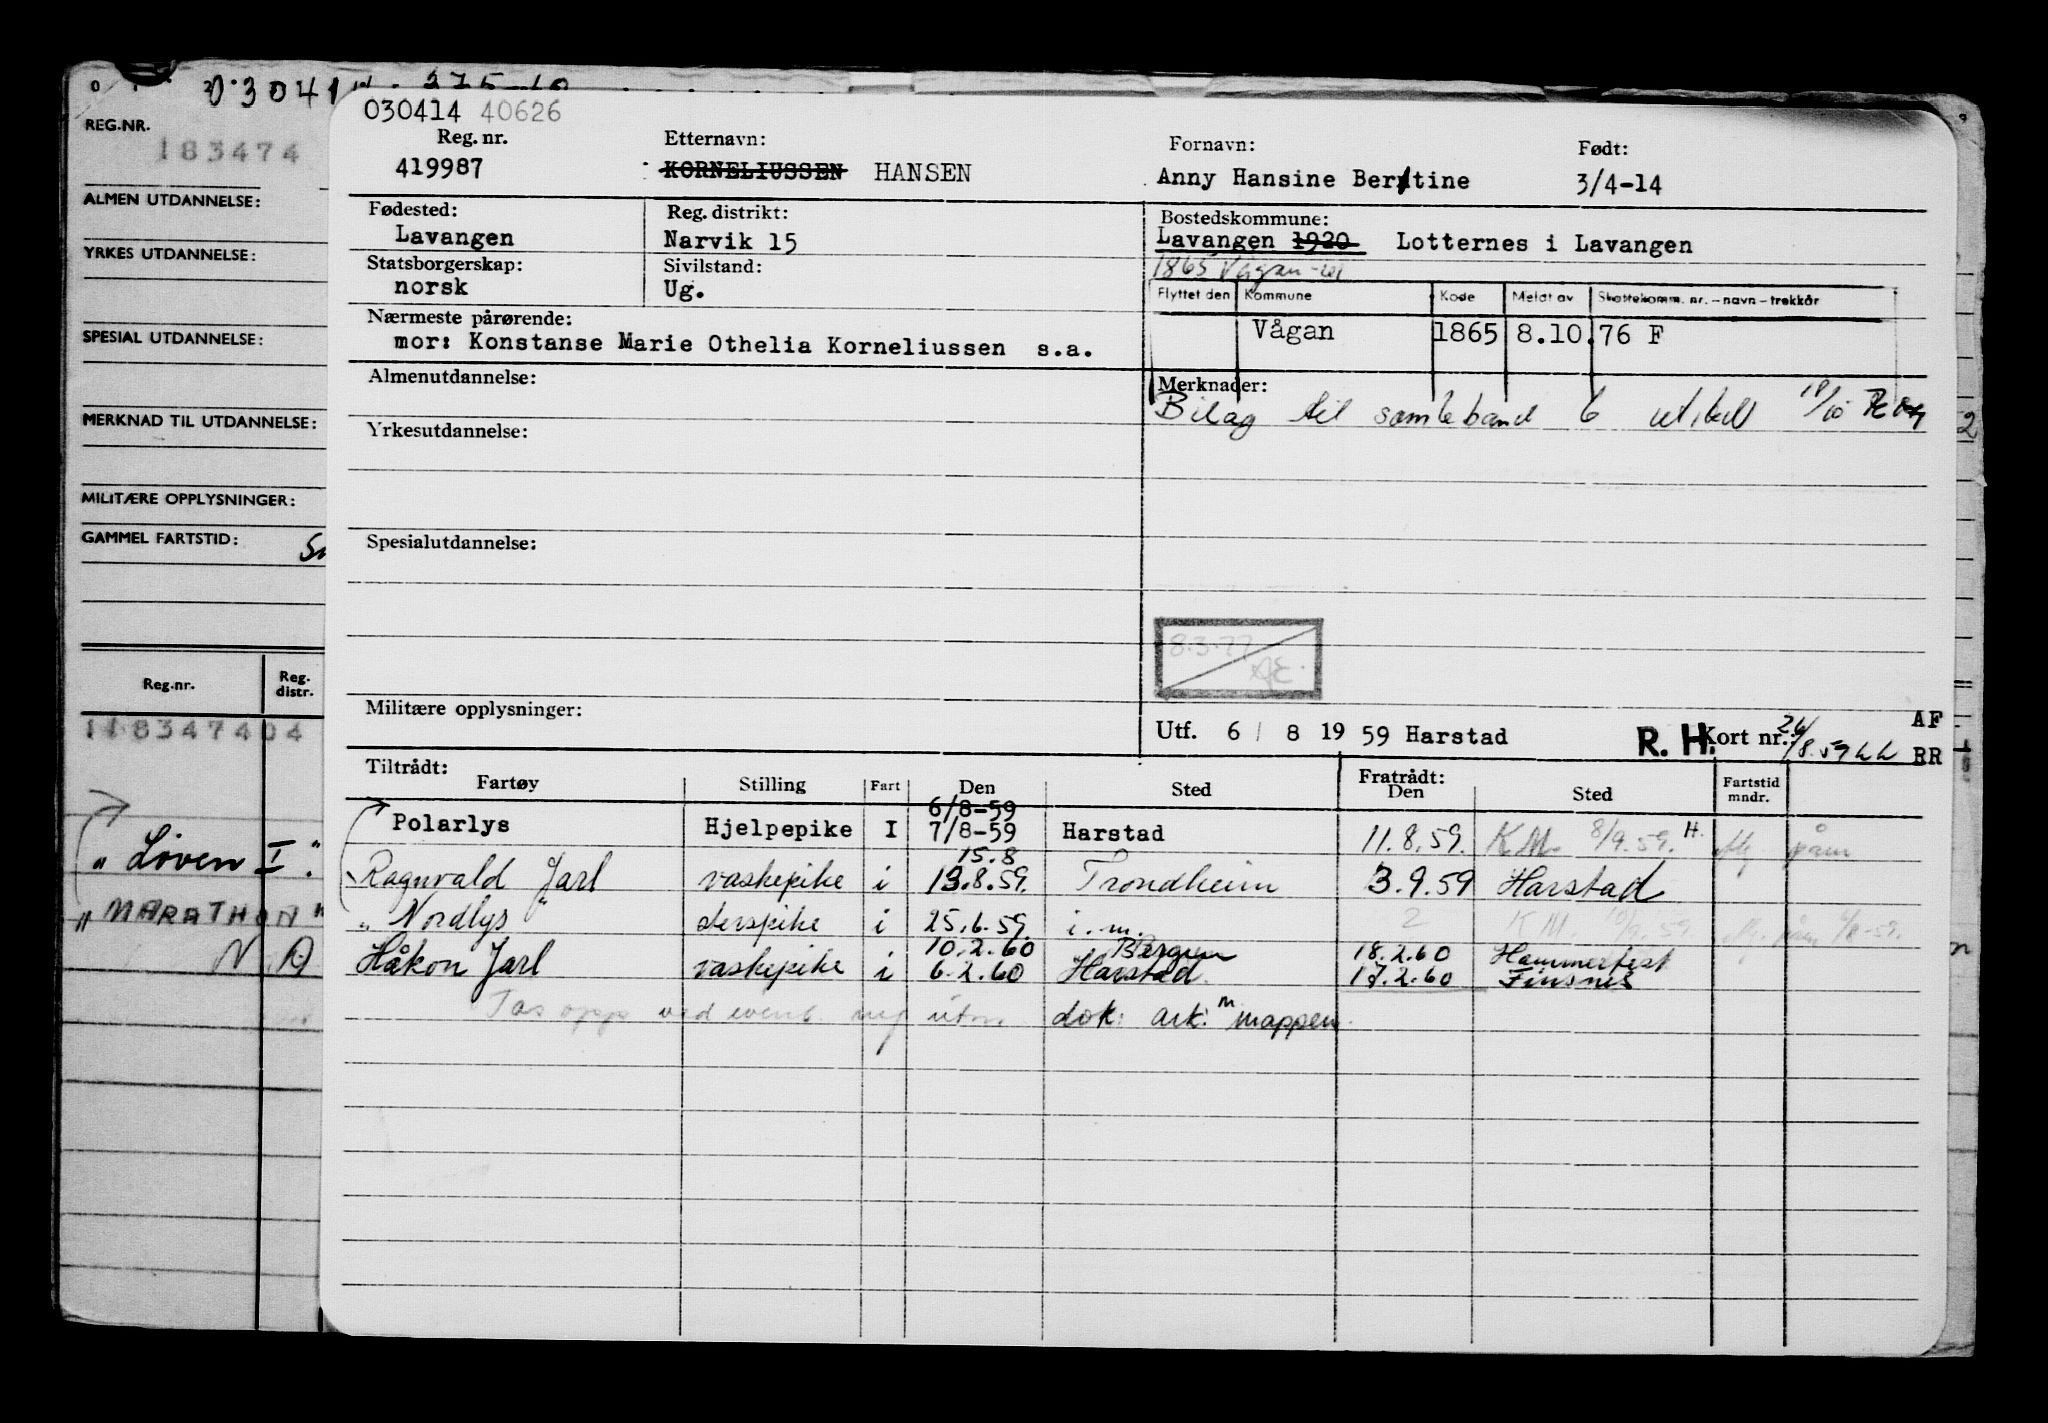 030414 40626
Reg. nr. Etternavn: Fornavn: Født:
419987 KORNELIUSSEN HANSEN Anny Hansine Bertine 3/4-14
Fødested: Reg. distrikt: Bostedskommune:
Lavangen Narvik 15 Lavangen 1920 Lotternes i Lavangen
Statsborgerskap: Sivilstand: 1865 Vågan
norsk Ug.
Flyttet den Kommune Kode Meldt av Skattekomm. nr. – navn – trekkår
Vågan 1865 8.10.76 F
Nærmeste pårørende:
mor: Konstanse Marie Othelia Korneliussen s.a.
Almenutdannelse: Merknader:
Bilag til samleband 6
Yrkesutdannelse:
Spesialutdannelse:
8.3.77
Militære opplysninger:
Utf. 6 / 8 19 59 Harstad R. H. Kort nr.: 26/8.59 AF
RR
Tiltrådt: Fratrådt:
Fartøy Stilling Fart Den Sted Den Sted Fartstid mndr.
6/8-59
Polarlys Hjelpepike I 7/8-59 Harstad 11.8.59. K.M. 8/9.59. H.
15.8
Ragnvald Jarl vaskepike i 13.8.59. Trondheim 3.9.59 Harstad
"Nordlys" i 25.6.59. i.m. 2 K.M.
10.2.60 Bergen 18.2.60 Hammerfest
Håkon Jarl vaskepike i 6.2.60 Harstad 17.2.60 Finsnes
Tas opp ved event. dok: ark: mappen.
REG.NR.
183474
ALMEN UTDANNELSE:
YRKES UTDANNELSE:
SPESIAL UTDANNELSE:
MERKNAD TIL UTDANNELSE:
MILITÆRE OPPLYSNINGER:
GAMMEL FARTSTID:
Reg.nr. Reg. distr.
118347404
"Löven I".
"MARATHON"